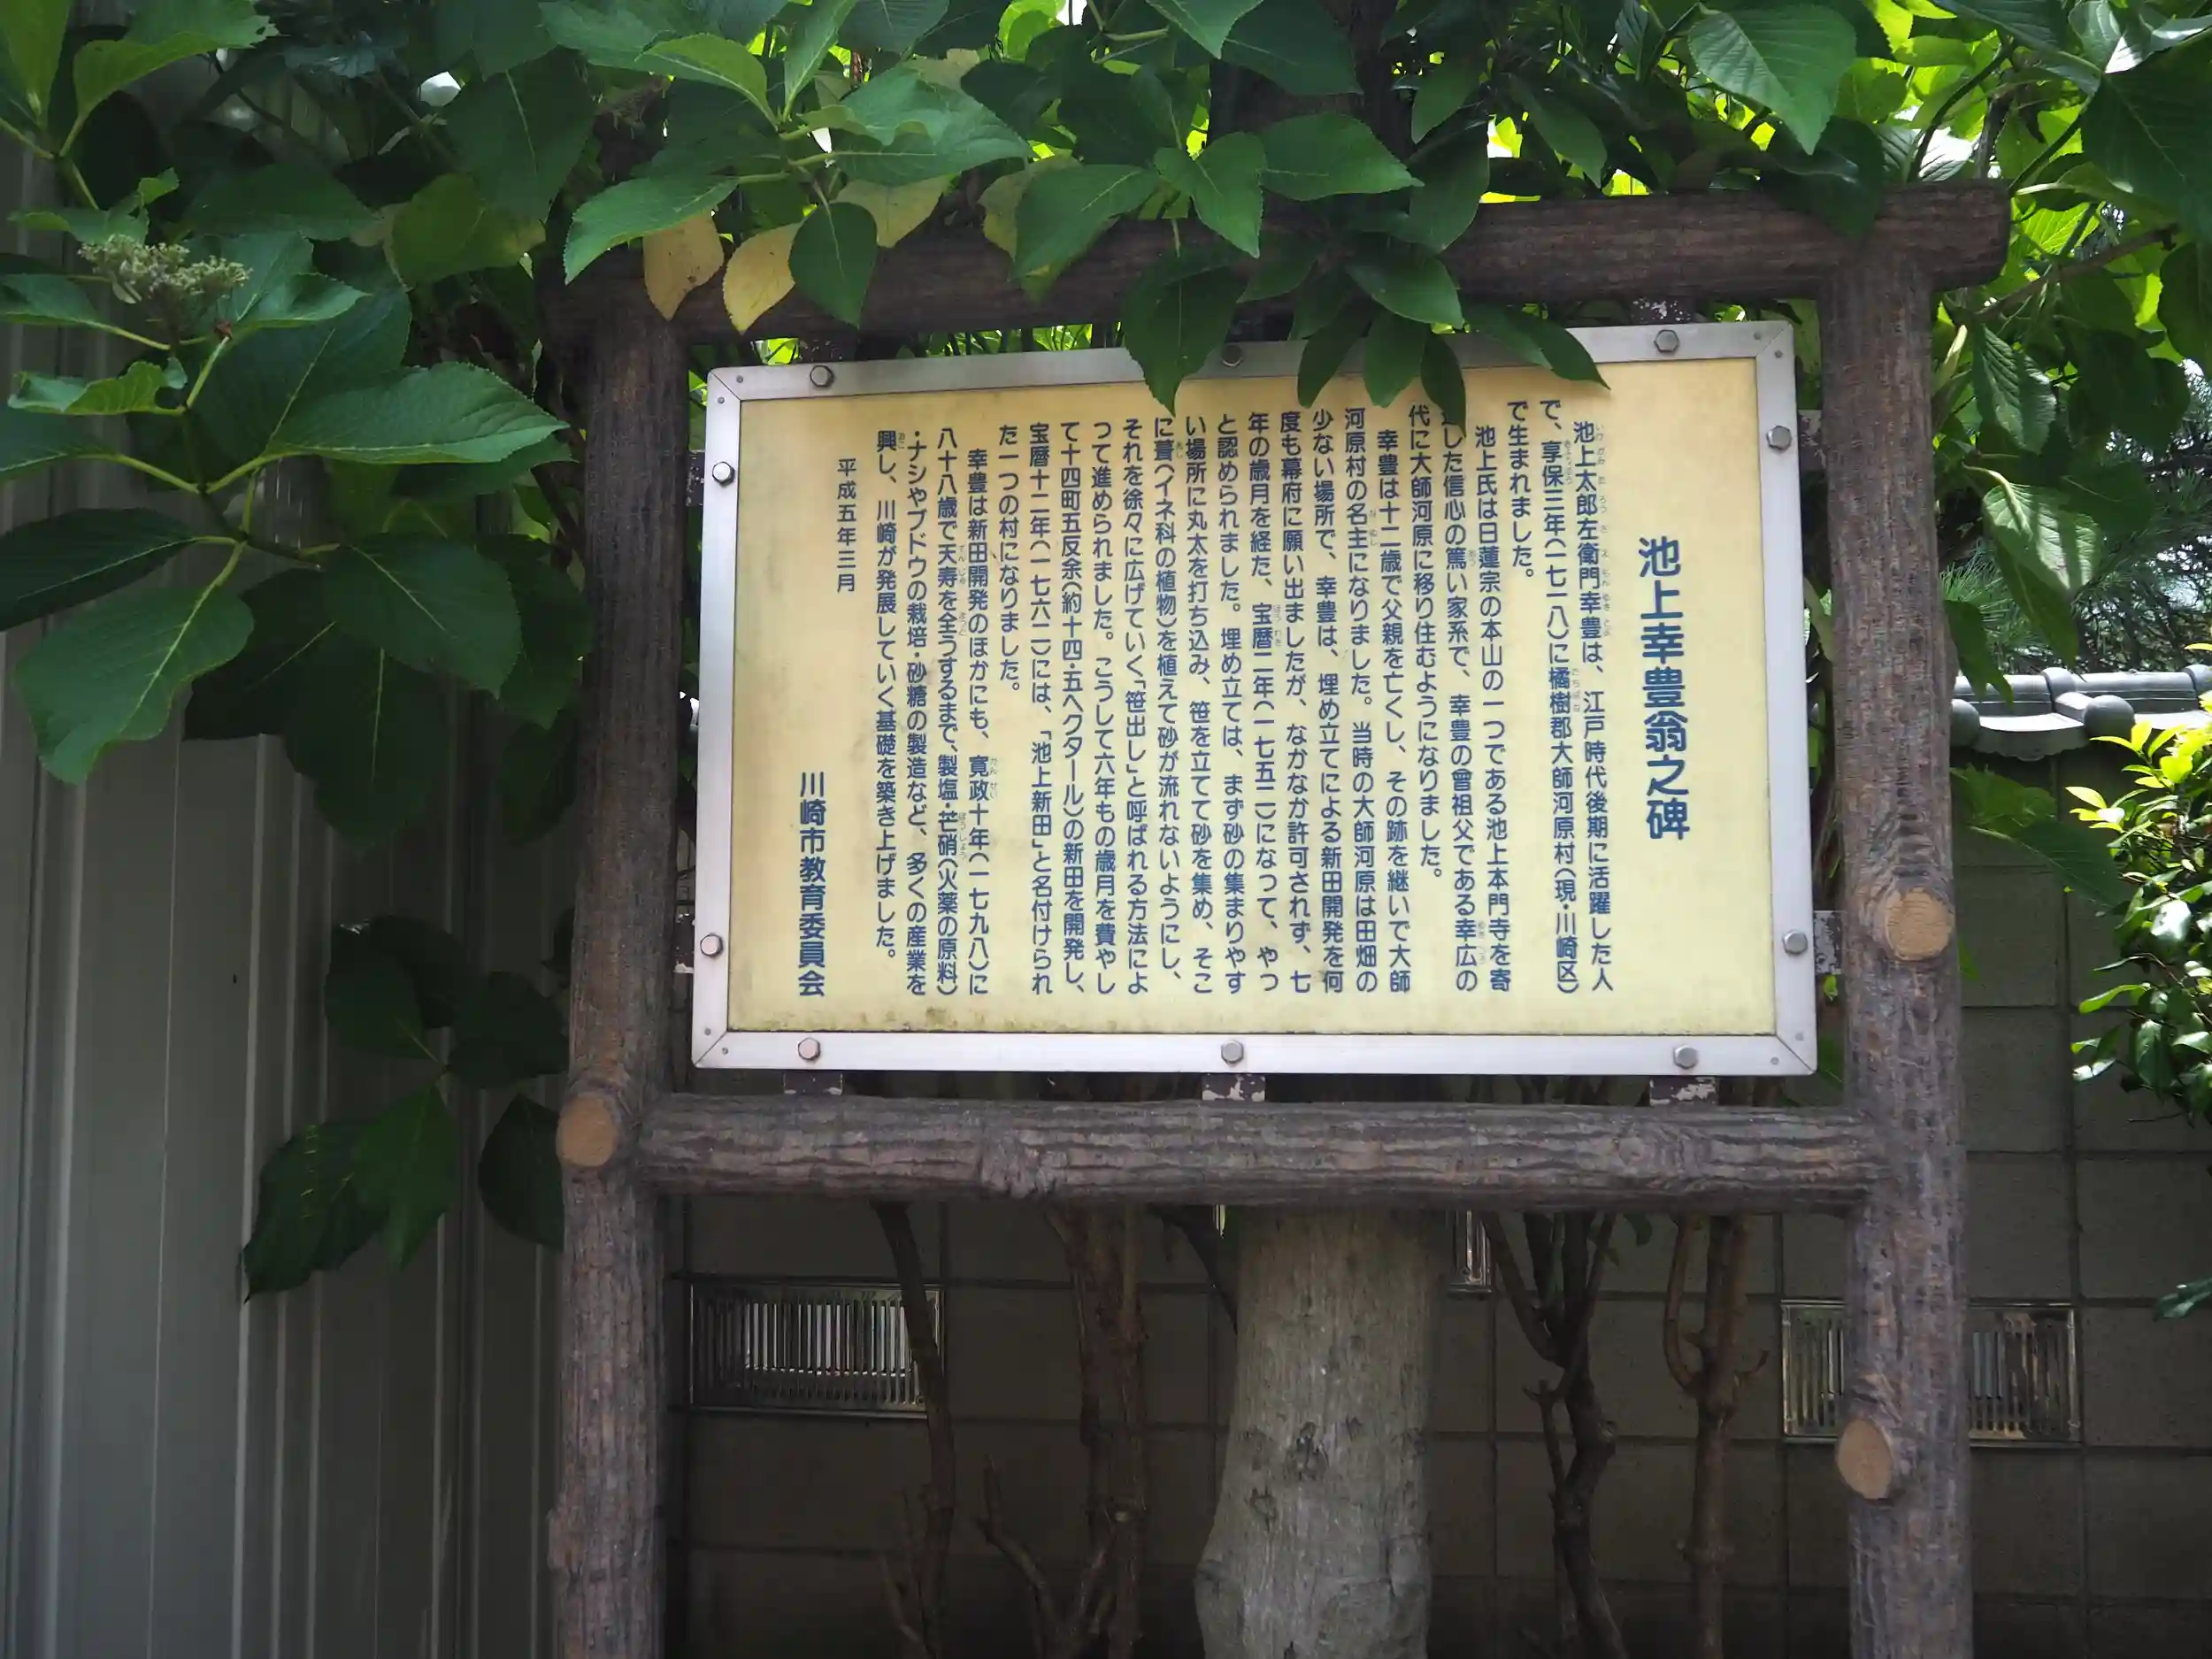 池上幸豊翁之碑
池上太郎左衛門幸豊は、江戸時代後期に活躍した人
で、享保三年(一七一八)に橘樹郡大師河原村(現・川崎区)
で生まれました。
池上氏は日蓮宗の本山の一つである池上本門寺を寄
した信心の篤い家系で、幸豊の曾祖父である幸広の
代に大師河原に移り住むようになりました。
幸豊は十二歳で父親を亡くし、その跡を継いで大師
河原村の名主になりました。当時の大師河原は田畑の
少ない場所で、幸豊は、埋め立てによる新田開発を何
度も幕府に願い出ましたが、なかなか許可されず、七
年の歳月を経た、宝暦二年(一七五二)になって、やっ
と認められました。埋め立ては、まず砂の集まりやす
い場所に丸太を打ち込み、笹を立てて砂を集め、そこ
に葦(イネ科の植物)を植えて砂が流れないようにし、
それを徐々に広げていく「笹出し」と呼ばれる方法によ
って進められました。こうして六年もの歳月を費やし
て十四町五反余(約十四・五ヘクタール)の新田を開発し、
宝暦十二年(一七六二)には、「池上新田」と名付けられ
た一つの村になりました。
幸豊は新田開発のほかにも、寛政十年(一七九八)に
八十八歳で天寿を全うするまで、製塩・芒硝(火薬の原料)
・ナシやブドウの栽培・砂糖の製造など、多くの産業を
興し、川崎が発展していく基礎を築き上げました。
平成五年三月
川崎市教育委員会